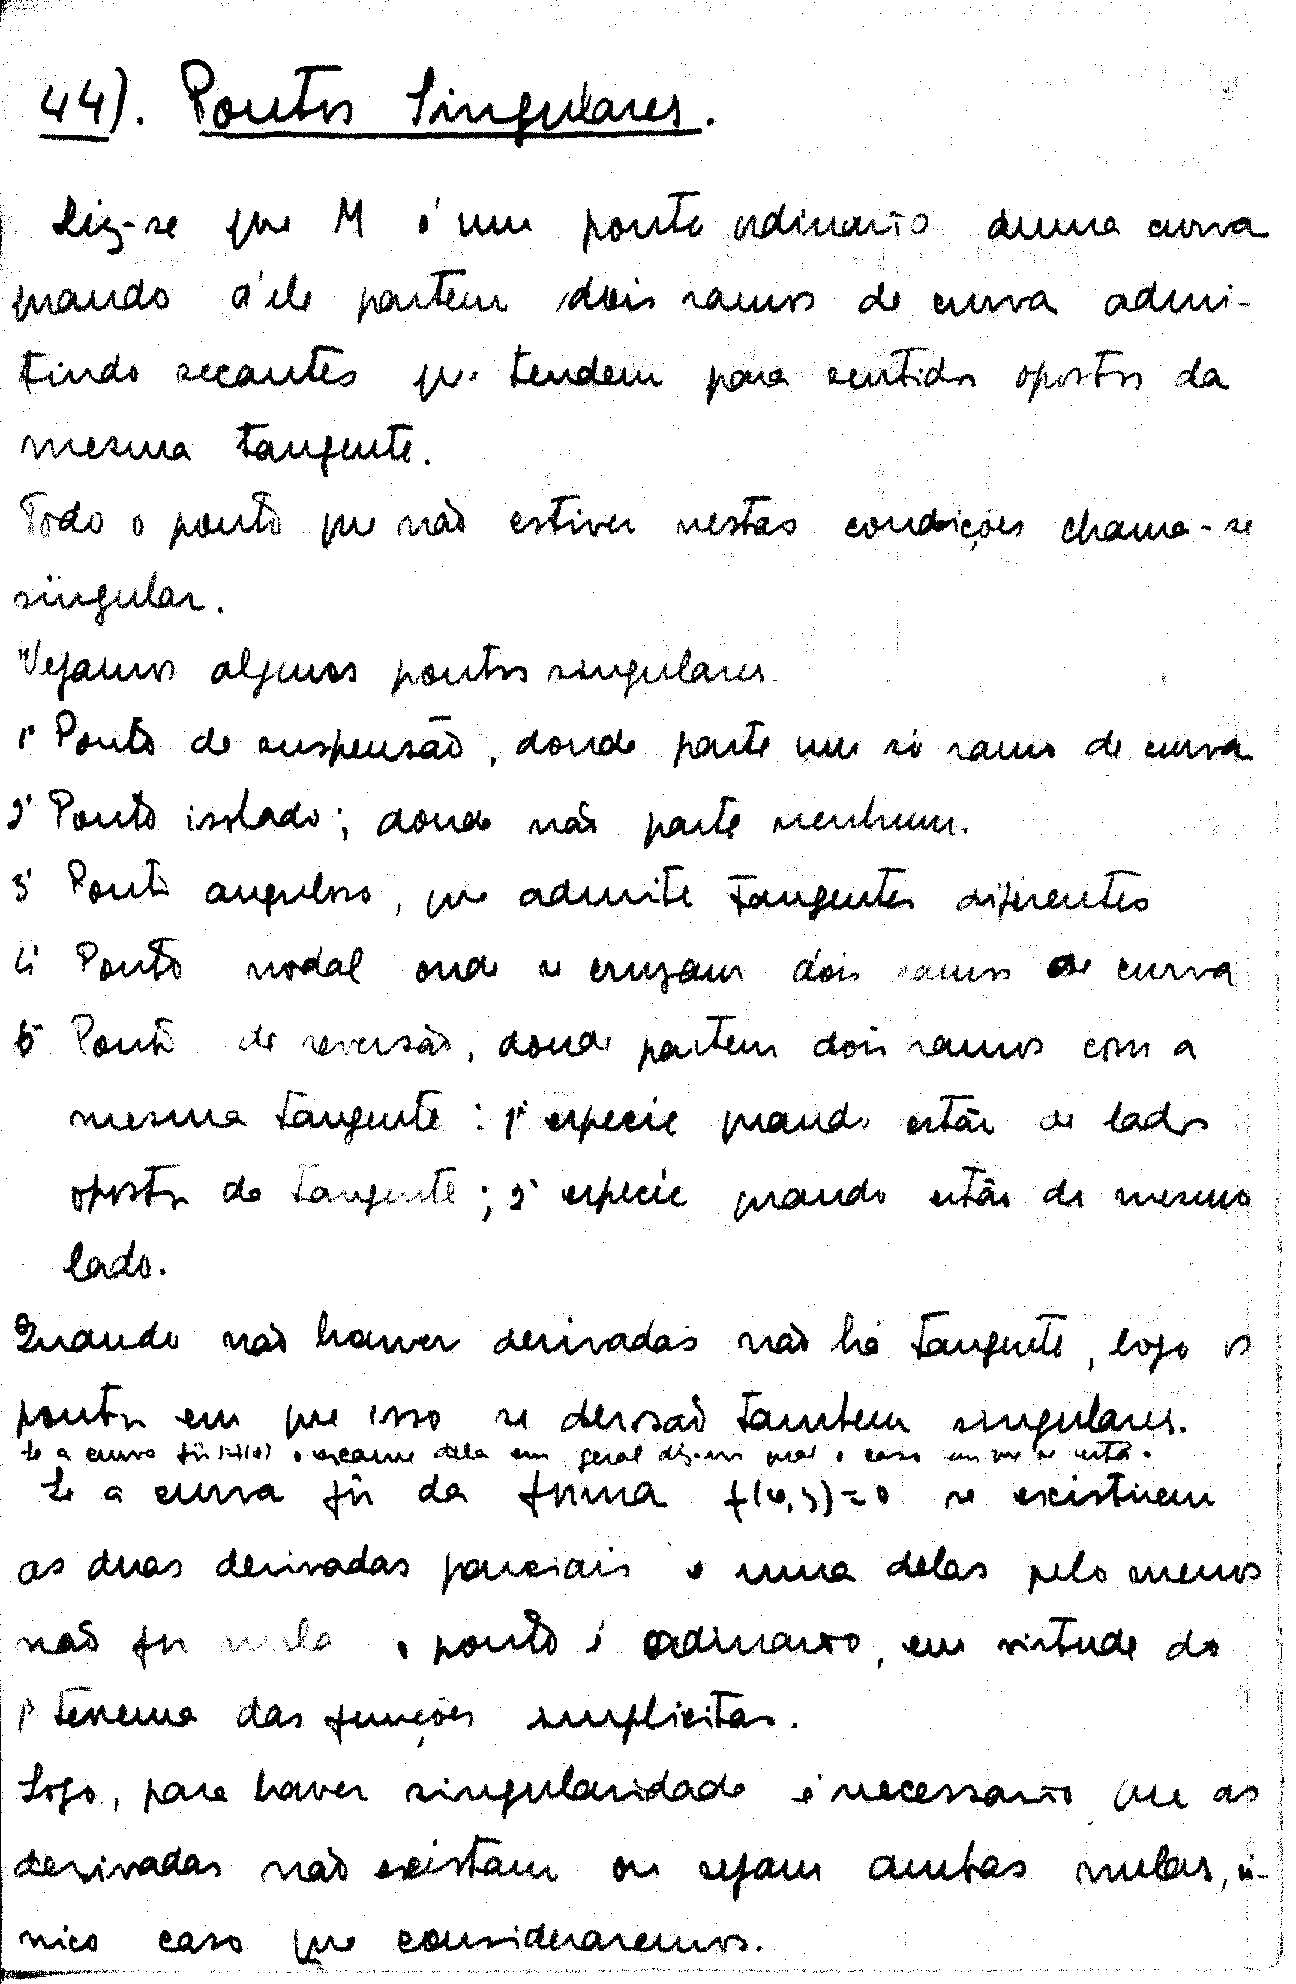 44). Pontos Singulares.
Diz-se que M é um ponto ordinario duma curva
quando d'ele partem dois ramos de curva admi-
tindo secantes que tendem para sentidos opostos da
mesma tangente.
Todo o ponto que não estiver nestas condições chama-se
singular.
Vejamos alguns pontos singulares
1º Ponto de suspensão, donde parte um só ramo de curva
2º Ponto isolado; donde não parte nenhum.
3º Ponto anguloso, que admite tangentes diferentes
4º Ponto nodal onde se cruzam dois ramos de curva
5º Ponto de reversão, donde partem dois ramos com a
mesma tangente: 1ª especie quando estão de lados
opostos da tangente; 2ª especie quando estão do mesmo
lado.
Quando não houver derivadas não há tangente, logo os
pontos em que isso se der são tambem singulares.
Se a curva fôr o exame dela em geral diz-nos qual o caso em que se está.
Se a curva fôr da forma f(x,y)=0 se existirem
as duas derivadas parciais e uma delas pelo menos
não for nula o ponto é ordinario, em virtude do
1º teorema das funções implicitas.
Logo, para haver singularidade é necessario que as
derivadas não existam ou sejam ambas nulas, ú-
nico caso que consideraremos.